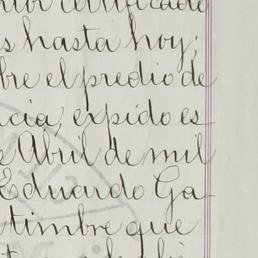 certificado
s hasta hoy;
bre el predio de
cia, expido es
e Abril de mil
Eduardo Ga
timbre que